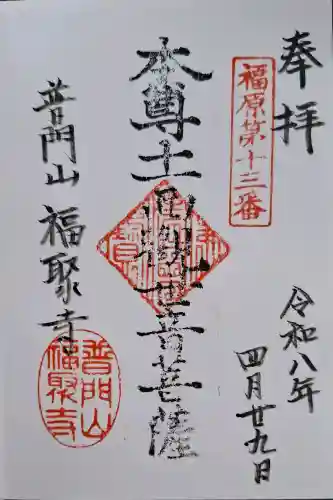 奉拝
福原第十三番
令和八年
四月廿九日
本尊 土 観世音菩薩
普門山 福聚寺
普門山
福聚寺